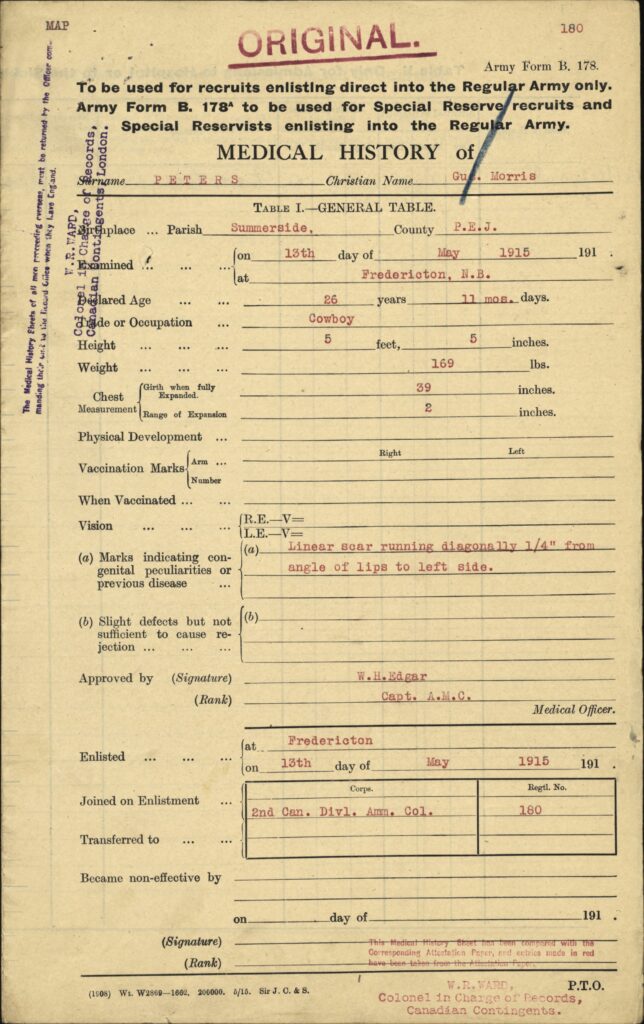 MAP
180
ORIGINAL.
Army Form B. 178.
To be used for recruits enlisting direct into the Regular Army only.
Army Form B. 178A to be used for Special Reserve recruits and
Special Reservists enlisting into the Regular Army.
MEDICAL HISTORY of
Surname PETERS Christian Name Gus. Morris
TABLE I.—GENERAL TABLE.
Birthplace ... Parish Summerside, County P.E.J.
Examined ... ... ... on 13th day of May 1915 191 .
at Fredericton, N.B.
Declared Age ... ... 26 years 11 mos. days.
Trade or Occupation ... Cowboy
Height ... ... ... 5 feet, 5 inches.
Weight ... ... ... 169 lbs.
Chest Measurement Girth when fully Expanded. 39 inches.
Range of Expansion 2 inches.
Physical Development ...
Right Left
Vaccination Marks Arm ...
Number
When Vaccinated ... ...
Vision ... ... ... R.E.—V=
L.E.—V=
(a) Marks indicating con- (a) Linear scar running diagonally 1/4" from
genital peculiarities or angle of lips to left side.
previous disease ...
(b) Slight defects but not (b)
sufficient to cause re-
jection ... ... ...
Approved by (Signature) W.H.Edgar
(Rank) Capt. A.M.C.
Medical Officer.
Enlisted ... ... ... at Fredericton
on 13th day of May 1915 191 .
Corps. Regtl. No.
Joined on Enlistment ... 2nd Can. Divl. Amm. Col. 180
Transferred to ... ...
Became non-effective by
on day of 191 .
(Signature)
(Rank)
This Medical History Sheet has been compared with the
Corresponding Attestation Paper, and entries made in red
have been taken from the Attestation Paper.
(1908) Wt. W2869—1662. 200000. 5/15. Sir J. C. & S.
P.T.O.
W.R.WARD,
Colonel in Charge of Records,
Canadian Contingents.
The Medical History Sheets of all men proceeding overseas, must be returned by the Officer com-
manding their unit to the Record Office when they leave England.
W.R.WARD,
Colonel in Charge of Records,
Canadian Contingents, London.